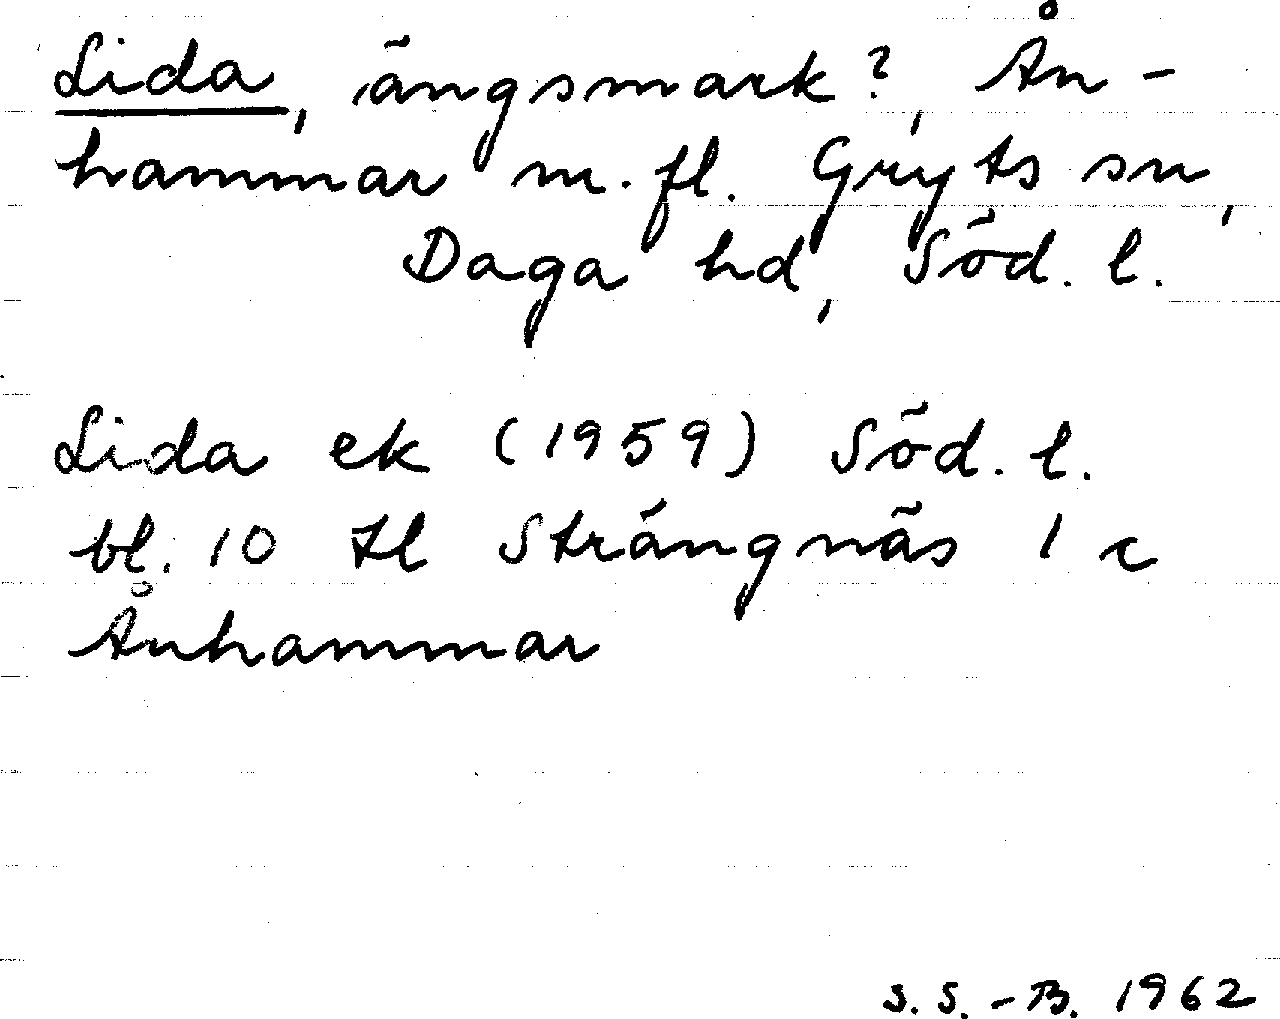 Lida, ängsmark?, Ån-
hammar m.fl. Gryts sn,
Daga hd, Söd. l.
Lida ek (1959) Söd. l.
bl. 10 tl Strängnäs 1 c
Ånhammar
S. S.-B. 1962